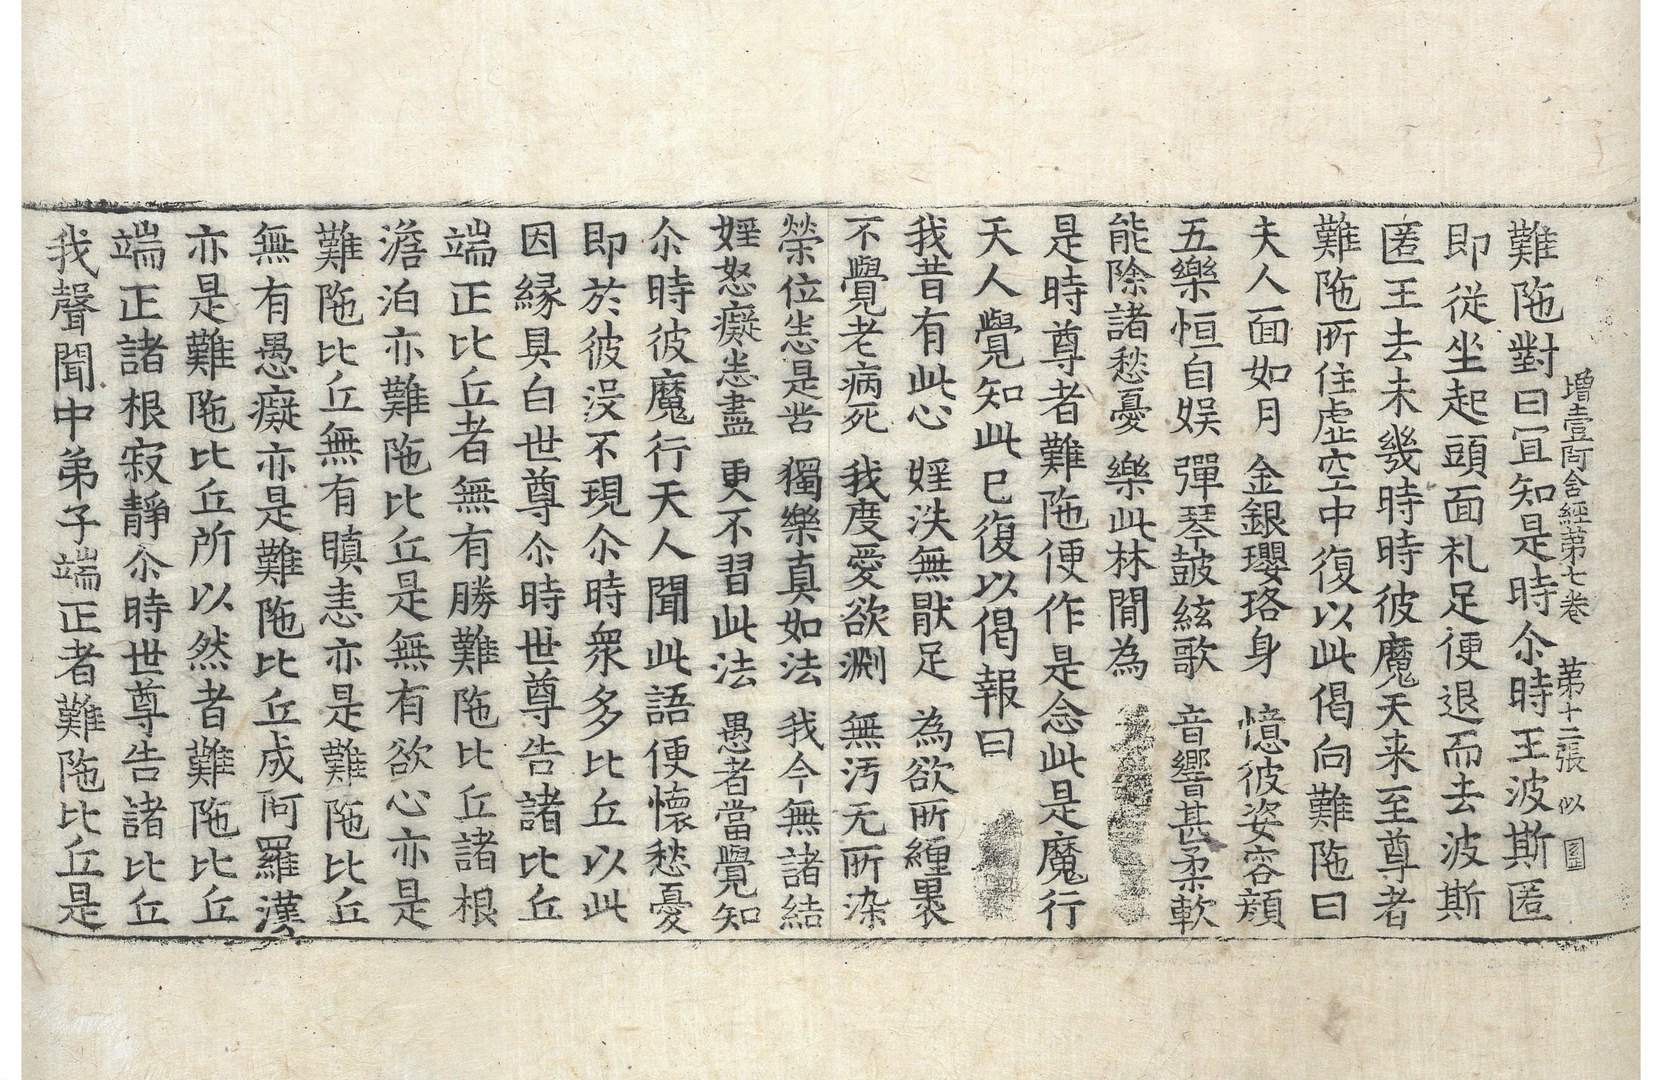 增壹阿含經第七卷 第十二張 似
難陁對曰冝知是時尒時王波斯匿
即従坐起頭面礼足便退而去波斯
匿王去未幾時時彼魔天来至尊者
難陁所住虛空中復以此偈向難陁曰
夫人面如月 金銀瓔珞身 憶彼姿容顔
五樂恒自娛 彈琴鼓絃歌 音響甚柔軟
能除諸愁憂 樂此林閒為
是時尊者難陁便作是念此是魔行
天人覺知此已復以偈報曰
我昔有此心 婬泆無猒足 為欲所纏裹
不覺老病死 我度愛欲淵 無汚无所染
榮位恙是苦 獨樂真如法 我今無諸結
婬怒癡恙盡 更不習此法 愚者當覺知
尒時彼魔行天人聞此語便懷愁憂
即於彼没不現尒時衆多比丘以此
因緣具白世尊尒時世尊告諸比丘
端正比丘者無有勝難陁比丘諸根
澹泊亦難陁比丘是無有欲心亦是
難陁比丘無有瞋恚亦是難陁比丘
無有愚癡亦是難陁比丘成阿羅漢
亦是難陁比丘所以然者難陁比丘
端正諸根寂靜尒時世尊告諸比丘
我聲聞中弟子端正者難陁比丘是